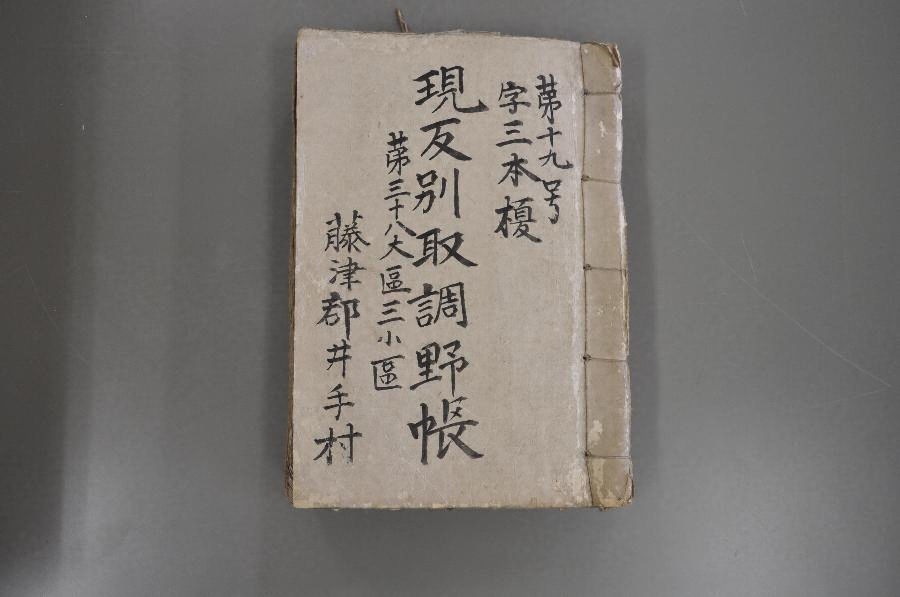 第十九号
字三本榎
現反別取調野帳
第三十八大區三小區
藤津郡井手村